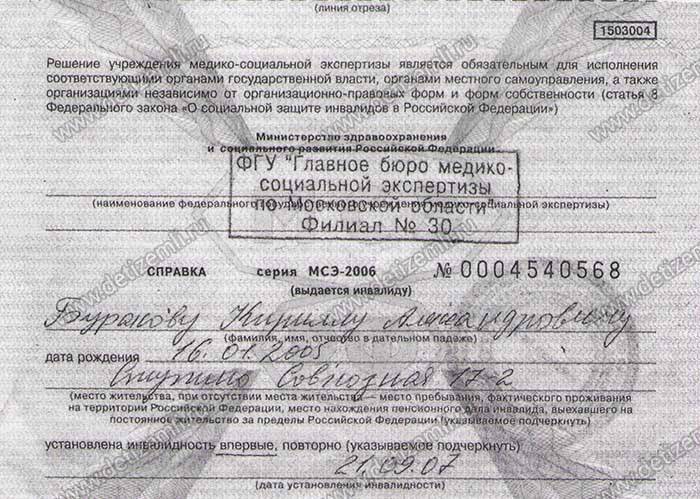 (линия отреза)
1503004
Решение учреждения медико-социальной экспертизы является обязательным для исполнения
соответствующими органами государственной власти, органами местного самоуправления, а также
организациями независимо от организационно-правовых форм и форм собственности (статья 8
Федерального закона «О социальной защите инвалидов в Российской Федерации»)
Министерство здравоохранения
и социального развития Российской Федерации
ФГУ "Главное бюро медико-
социальной экспертизы
по Московской области"
Филиал № 30
(наименование федерального государственного учреждения медико-социальной экспертизы)
СПРАВКА серия МСЭ-2006 № 0004540568
(выдается инвалиду)
Буракову Кириллу Александровичу
(фамилия, имя, отчество в дательном падеже)
дата рождения 16.01.2005
Ступино Союзная 17-2
(место жительства, при отсутствии места жительства — место пребывания, фактического проживания
на территории Российской Федерации, место нахождения пенсионного дела инвалида, выехавшего на
постоянное жительство за пределы Российской Федерации (указываемое подчеркнуть)
установлена инвалидность впервые, повторно (указываемое подчеркнуть)
21.09.07
(дата установления инвалидности)
www.detizemli.ru